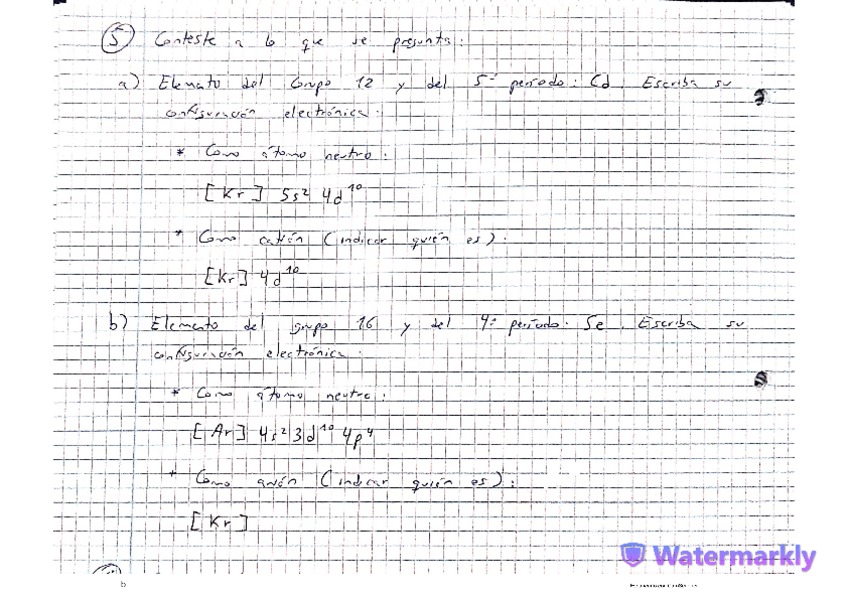 5 Conteste a lo que se pregunta:
a) Elemento del Grupo 12 y del 5º período: Cd. Escriba su
configuración electrónica:
* Como átomo neutro:
[Kr] 5s² 4d¹⁰
* Como catión (indicar quién es):
[Kr] 4d¹⁰
b) Elemento del grupo 16 y del 4º período: Se. Escriba su
configuración electrónica:
* Como átomo neutro:
[Ar] 4s² 3d¹⁰ 4p⁴
* Como anión (indicar quién es):
[Kr]
Watermarkly